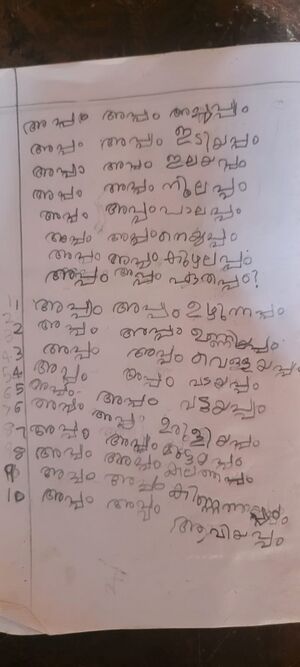 അപ്പം അപ്പം അച്ചപ്പം
അപ്പം അപ്പം ഇടിയപ്പം
അപ്പം അപ്പം ഇലയപ്പം
അപ്പം അപ്പം നൂലപ്പം
അപ്പം അപ്പം പാലപ്പം
അപ്പം അപ്പം നെയ്യപ്പം
അപ്പം അപ്പം കുഴലപ്പം
അപ്പം അപ്പം ഏതപ്പം?
1 അപ്പം അപ്പം ഉഴുന്നപ്പം
2 അപ്പം അപ്പം ഉണ്ണിയപ്പം
3 അപ്പം അപ്പം വെള്ളയപ്പം
4 അപ്പം അപ്പം വടയപ്പം
5 അപ്പം അപ്പം വട്ടയപ്പം
6 അപ്പം അപ്പം ഉരുളിയപ്പം
7 അപ്പം അപ്പം മുട്ടയപ്പം
8 അപ്പം അപ്പം കലത്തപ്പം
9 അപ്പം അപ്പം കിണ്ണത്തപ്പം
10 അപ്പം അപ്പം
ആവിയപ്പം